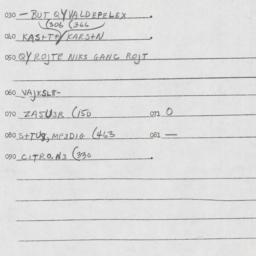 030 — BUT QYVALDEPELEX
(306 (366
040 KAS+T+ KARS+N
050 QYROJTE NIKS GANC ROJT
060 VAJKSLE-
070 ZASU3R (150 071 0
080 S+TU8, MP3DIG (463 081 —
090 CITRO.N3 (330